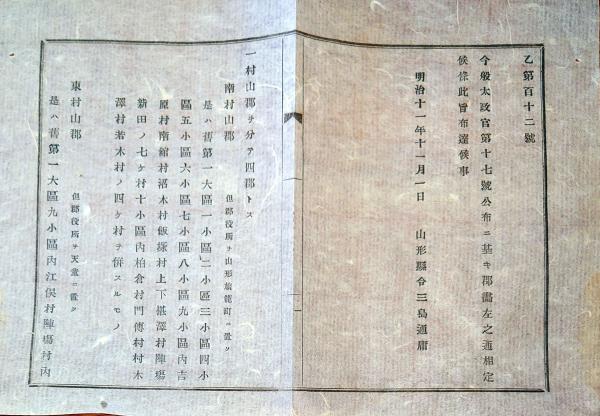 乙第百十二號
今般太政官第十七號公布ニ基キ郡畫左之通相定
候條此旨布達候事
明治十一年十一月一日　山形縣令三島通庸
一村山郡ヲ分テ四郡トス
南村山郡　但郡役所ヲ山形旅籠町ニ置ク
是ハ舊第一大區一小區二小區三小區四小
區五小區六小區七小區八小區九小區內吉
原村南舘村沼木村飯塚村上下椹澤村陣塲
新田ノ七ケ村十小區內柏倉村門傳村村木
澤村若木村ノ四ケ村ヲ併スルモノ
東村山郡　但郡役所ヲ天童ニ置ク
是ハ舊第一大區九小區內江俣村陣塲村內